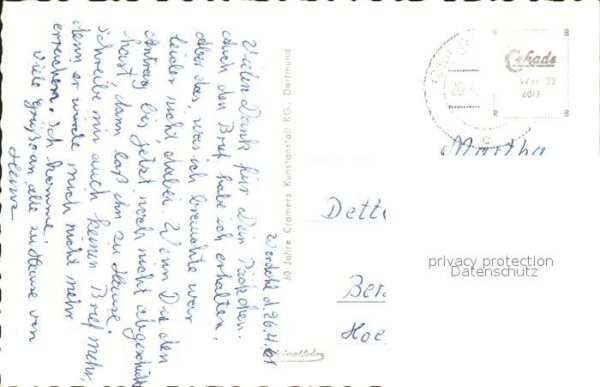 Werdohl d. 26.4.61
Vielen Dank für Dein Päckchen.
Auch den Brief habe ich erhalten,
aber das, was ich brauchte war
leider nicht dabei. Wenn Du den
Antrag bis jetzt noch nicht abgeschickt
hast, dann laß ihn zu Hause.
Schreibe mir auch keinen Brief mehr,
denn er würde mich nicht mehr
erreichen. Ich komme.
Viele Grüße an alle zu Hause von
60 Jahre Cramers Kunstanstalt KG., Dortmund
Cekade
Wer 23
6013
Martha
Dette
privacy protection
Datenschutz
Ber
Hoe